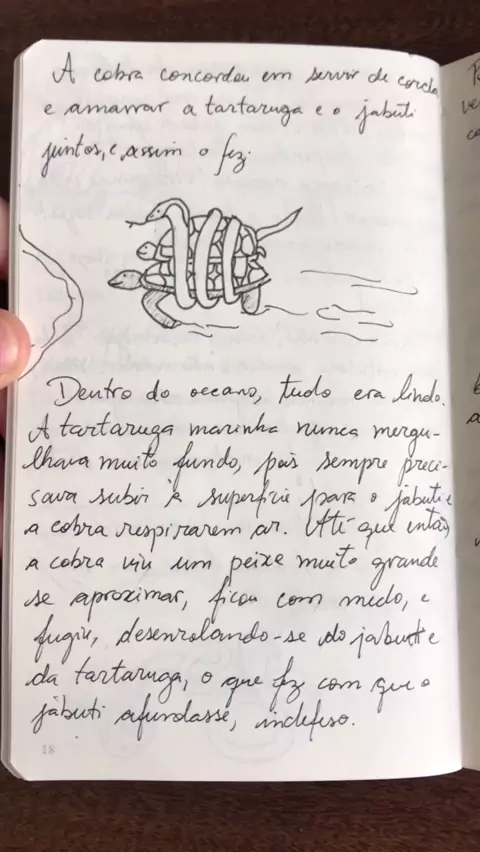 A cobra concordou em servir de corda
e amarrar a tartaruga e o jabuti
juntos, e assim o fez:
Dentro do oceano, tudo era lindo.
A tartaruga marinha nunca mergu-
lhava muito fundo, pois sempre preci-
sava subir à superfície para o jabuti e
a cobra respirarem ar. Até que então
a cobra viu um peixe muito grande
se aproximar, ficou com medo, e
fugiu, desenrolando-se do jabuti e
da tartaruga, o que fez com que o
jabuti afundasse, indefeso.
18